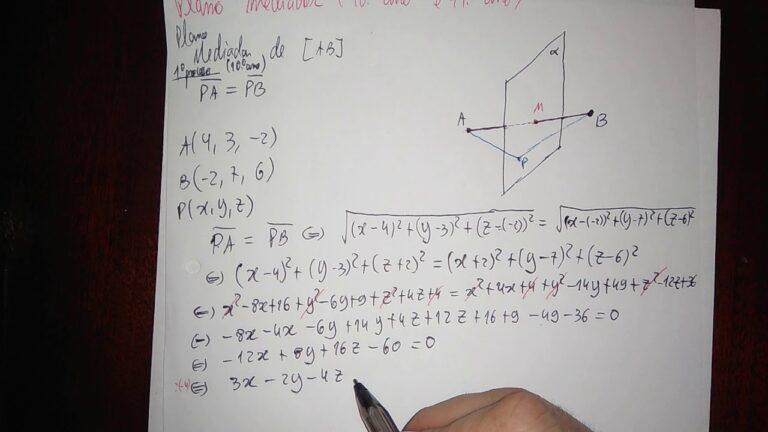 Plano mediador (10.º ano e 11.º ano)
Plano
Mediador de [AB]
1º processo (10.º ano)
P̅A̅ = P̅B̅
α
A M B
P
A(4, 3, -2)
B(-2, 7, 6)
P(x, y, z)
P̅A̅ = P̅B̅ ⇔ √((x-4)²+(y-3)²+(z-(-2))²) = √((x-(-2))²+(y-7)²+(z-6)²)
⇔ (x-4)²+(y-3)²+(z+2)² = (x+2)²+(y-7)²+(z-6)²
⇔ x²-8x+16+y²-6y+9+z²+4z+4 = x²+4x+4+y²-14y+49+z²-12z+36
⇔ -8x-4x-6y+14y+4z+12z+16+9-49-36=0
⇔ -12x+8y+16z-60=0
:(-4) ⇔ 3x-2y-4z